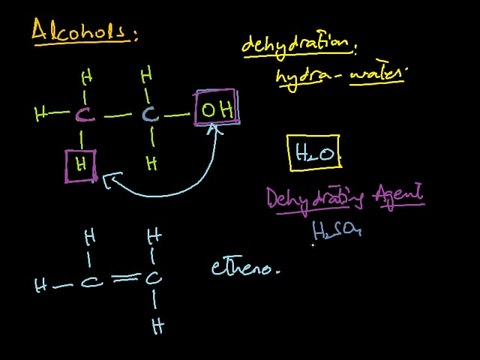 Alcohols:
dehydration.
hydra-water.
H H
H C C OH
H H
H₂O
Dehydrating Agent
H₂SO₄
H H
H C C
H
etheno.